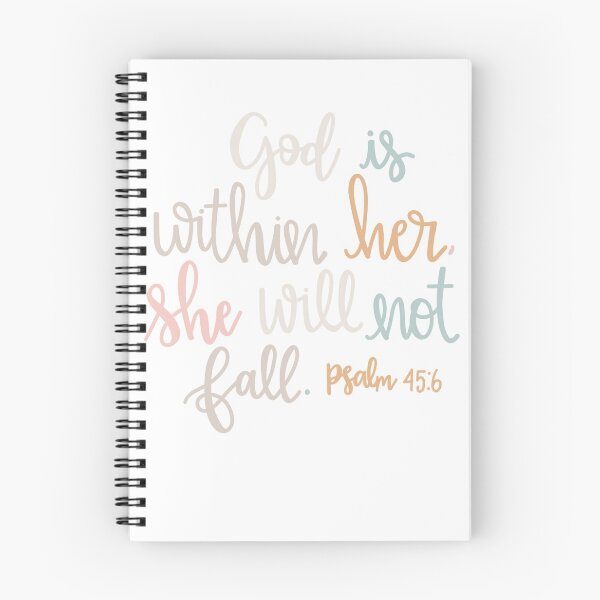 God is
within her,
she will not
fall. psalm 45:6